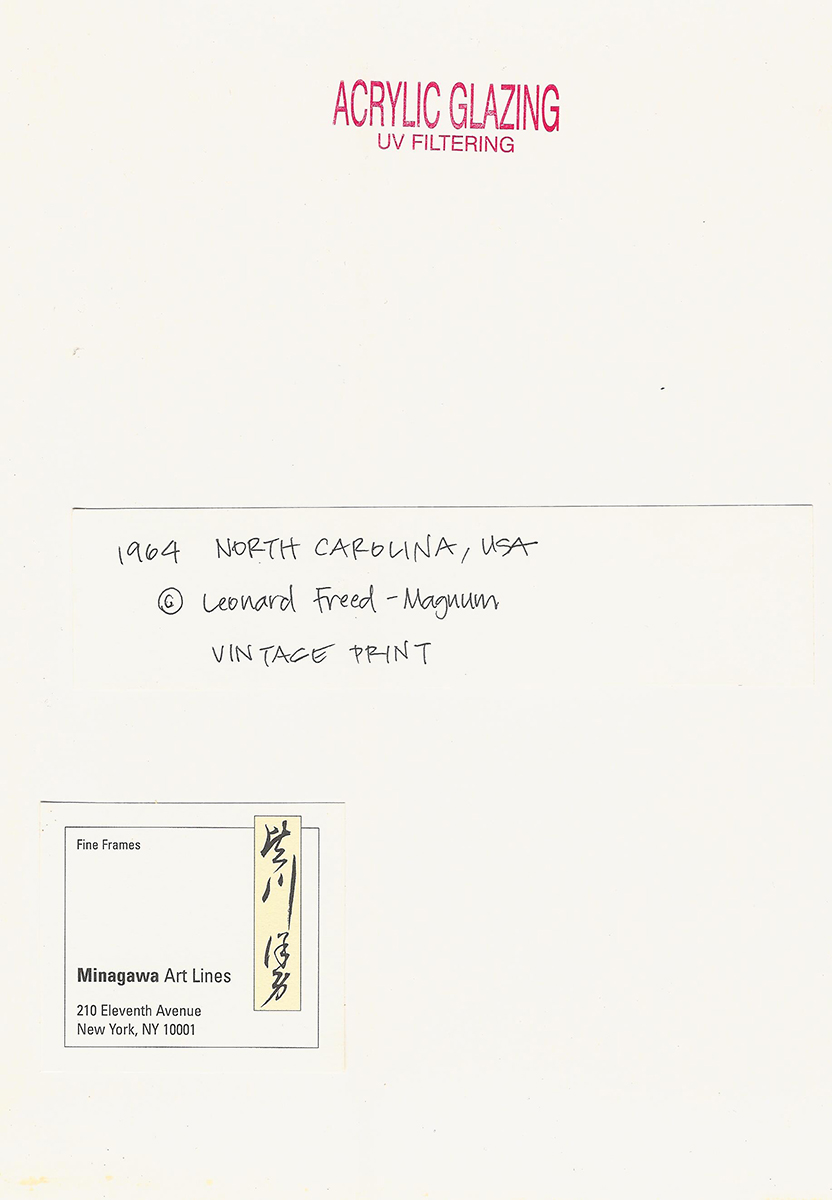 ACRYLIC GLAZING
UV FILTERING
1964 NORTH CAROLINA, USA
© Leonard Freed - Magnum
VINTAGE PRINT
Fine Frames
皆川洋男
Minagawa Art Lines
210 Eleventh Avenue
New York, NY 10001